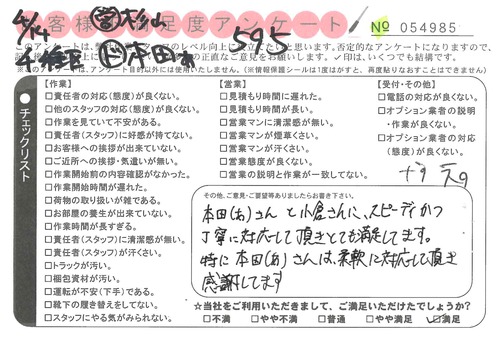 お客様満足度アンケート
4/14
営 杉山
千種区
本田
595
№ 054985
✓印は、いくつでも結構です。
※当社では、アンケート目的以外には使用いたしません。(※情報保護シールは1度はがすと、再度貼りなおすことはできません)
チェックリスト
【作業】
□責任者の対応(態度)が良くない。
□他のスタッフの対応(態度)が良くない。
□作業を見ていて不安がある。
□責任者(スタッフ)に好感が持てない。
□お客様への挨拶が出来ていない。
□ご近所への挨拶・気遣いが無い。
□作業開始前の内容確認がなかった。
□作業開始時間が遅れた。
□荷物の取り扱いが雑である。
□お部屋の養生が出来ていない。
□作業時間が長すぎる。
□責任者(スタッフ)に清潔感が無い。
□責任者(スタッフ)が汗くさい。
□トラックが汚い。
□梱包資材が汚い。
□運転が不安(下手)である。
□靴下の履き替えをしてない。
□スタッフにやる気がみられない。
【営業】
□見積もり時間に遅れた。
□見積もり時間が長い。
□営業マンに清潔感が無い。
□営業マンが煙草くさい。
□営業マンが汗くさい。
□営業態度が良くない。
□営業の説明と作業が一致してない。
【受付・その他】
□電話の対応が良くない。
□オプション業者の説明
・作業が良くない。
□オプション業者の対応
(態度)が良くない。
その他、ご意見・ご要望等ありましたらお書き下さい。
本田(あ)さんと小倉さんに、スピーディかつ
丁寧に対応して頂きとても満足してます。
特に本田(あ)さんは柔軟に対応して頂き
感謝してます
☆当社をご利用いただきまして、ご満足いただけたでしょうか?
□不満 □やや不満 □普通 □やや満足 ☑満足